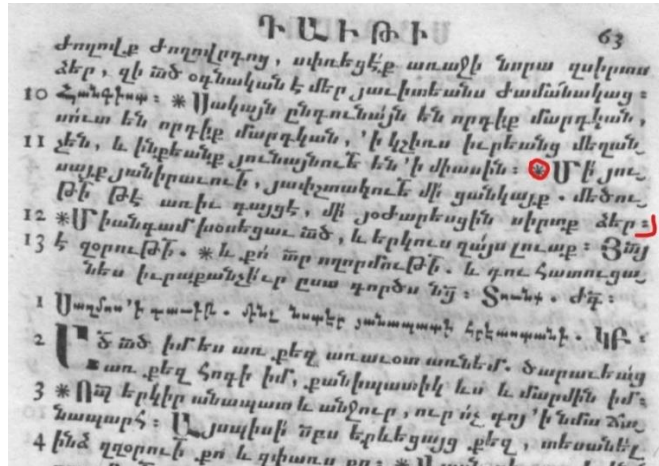 ԴԱՒԹԻ 63
ժողովք ժողովրդոց, սփռեցէ՛ք առաջի նորա զսիրտս
ձեր, զի ա՟ծ օգնական է մեր յաւիտեանս ժամանակաց ։
10 Հանգիստ ։ ※ Սակայն ընդունայն են որդիք մարդկան,
սուտ են որդիք մարդկան, 'ի կշիռս իւրեանց մեղան
11 չեն, և ինքեանք յունայնուէ են 'ի միասին ։ ※ Մի՛ յու
սայք յանիրաւուի, յափշտակուէ մի՛ ցանկայք . մեծու
Թի Թէ առիւ գայցէ, մի՛ յօժարեսցին սիրտք ձեր ։
12 ※ Միանգամ խօսեցաւ ա՟ծ, և երկուս զայս լուաք ։ Զի ա՟յ
13 է զօրուԹի . ※ և քո՛ տ՟ր ողորմուԹի . և դու հատուցա
նես իւրաքանչիւր ըստ գործս ն՟ց ։
1 Սաղմոս 'ի դաւիԹ . մինչ նստէր յանապատի հրէաստանի . ԿԲ ։
2 Ա՟ծ ա՟ծ իմ ես առ քեզ առաւօտ առնեմ . ծարաւեաց
առ քեզ հոգի իմ, քանիպատիկ ևս և մարմին իմ ։
3 ※ Որպ երկիր անապատ և անջուր, ուր ո՛չ գոյ 'ի նմա ճա
նապարհ ։ Այսպիսի սրբս երևեցայց քեզ, տեսանել
4 ինձ զզօրուի քո և զփառս քո ։